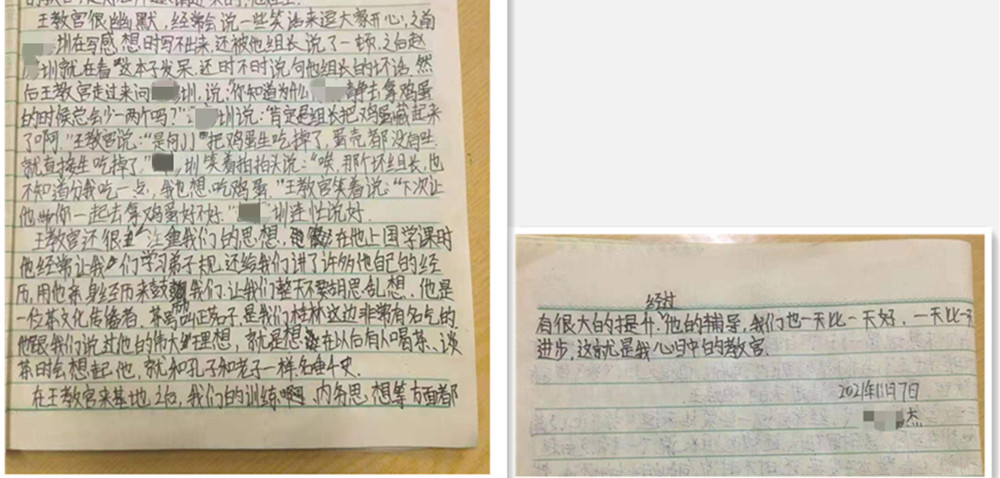 王教官很幽默，经常会说一些笑话来逗大家开心，之前
圳在写感想时写不出来，还被他组长说了一顿，之后赵
圳就在看这本子发呆，还时不时说句他组长的坏话，然
后王教官走过来问圳，说："你知道为什么去拿鸡蛋
的时候总会少一两个吗？"圳说："肯定是组长把鸡蛋藏起来
了啊，"王教官说："是阿把鸡蛋生吃掉了，蛋壳都没有吐
就直接生吃掉了"，圳笑着拍拍头说："唉，那个坏组长，也
不知道分我吃一点，我也想吃鸡蛋，"王教官笑着说："下次让
他哟你一起去拿鸡蛋好不好。"圳连忙说好。
王教官还很注重我们的思想，在他上国学课时
他经常让我们学习弟子规，还给我们讲了许多他自己的经
历，用他亲身经历来鼓我们，让我们整天不要胡思乱想，他是
一位茶文化传播者，茶号叫正茶子是我们桂林这边非常有名气的
他跟我们说过他的伟大理想，就是想在以后有人喝茶、谈
茶时会想起他，就和孔子和老子一样名垂千史.
在王教官来基地之后，我们的训练啊，内务思想等方面都
经过
有很大的提升，他的辅导，我们也一天比一天好，一天比一天
进步，这就是我心中的教官.
2021年11月7日
杰